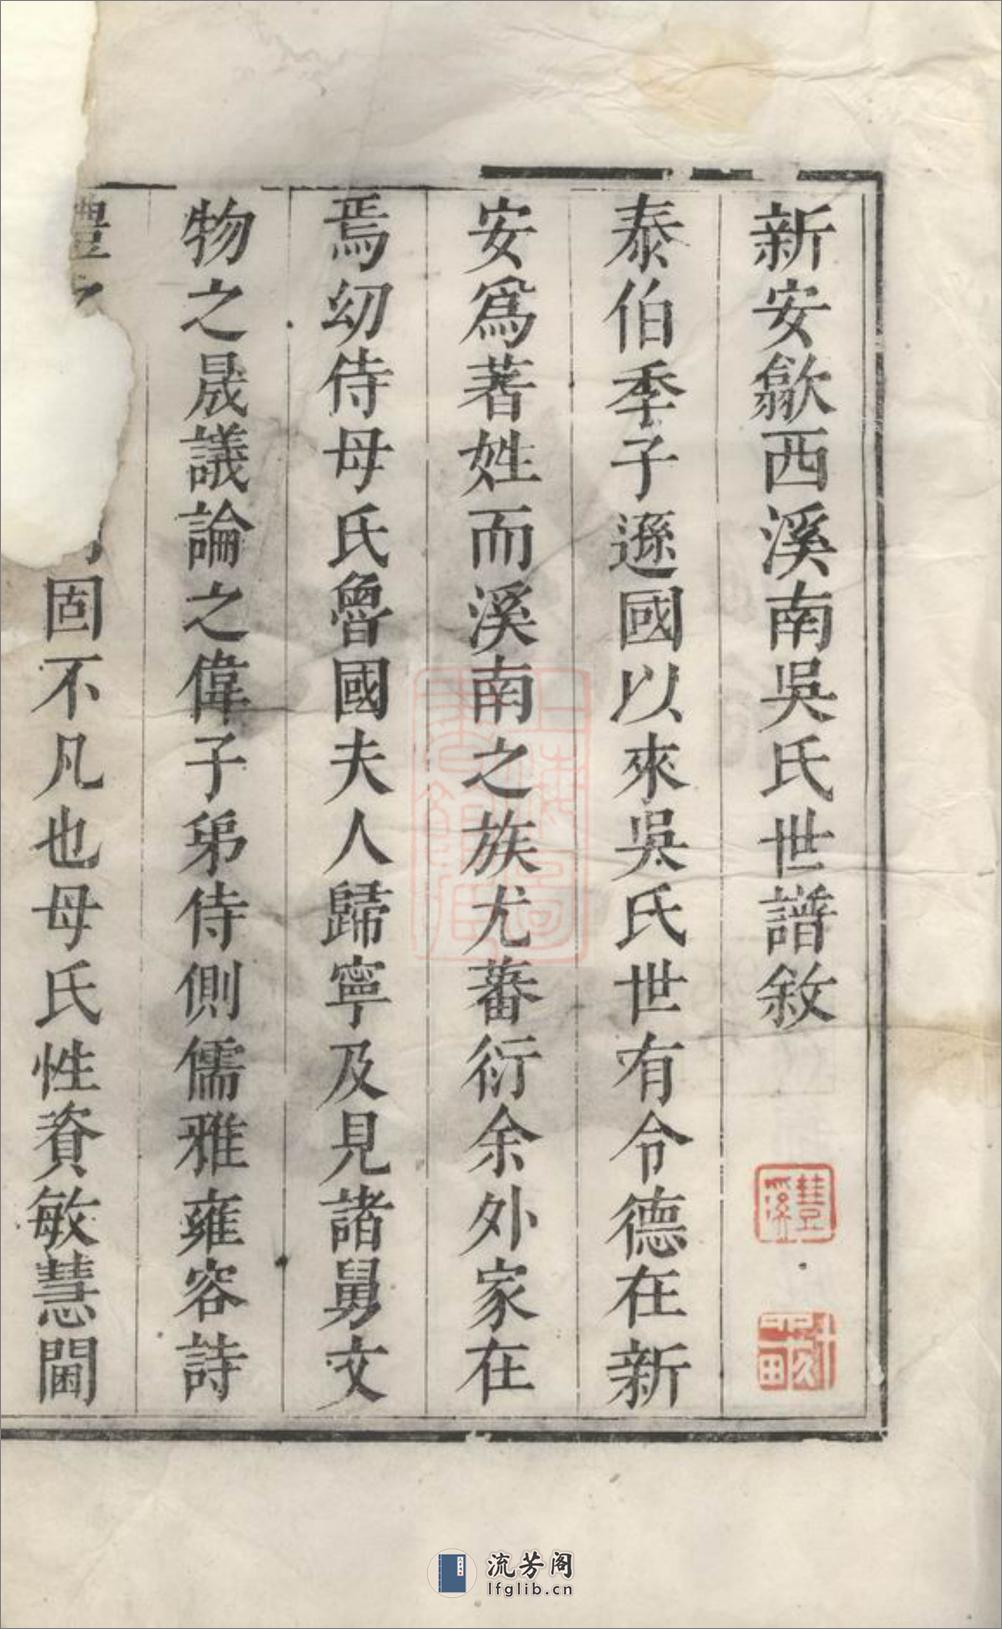 新安歙西溪南吳氏世譜敘
泰伯季子遜國以來吳氏世有令德在新
安爲著姓而溪南之族尤蕃衍余外家在
焉幼侍母氏魯國夫人歸寧及見諸舅文
物之晟議論之偉子弟侍側儒雅雍容詩
禮固不凡也母氏性資敏慧閫
豐溪
流芳阁
lfglib.cn